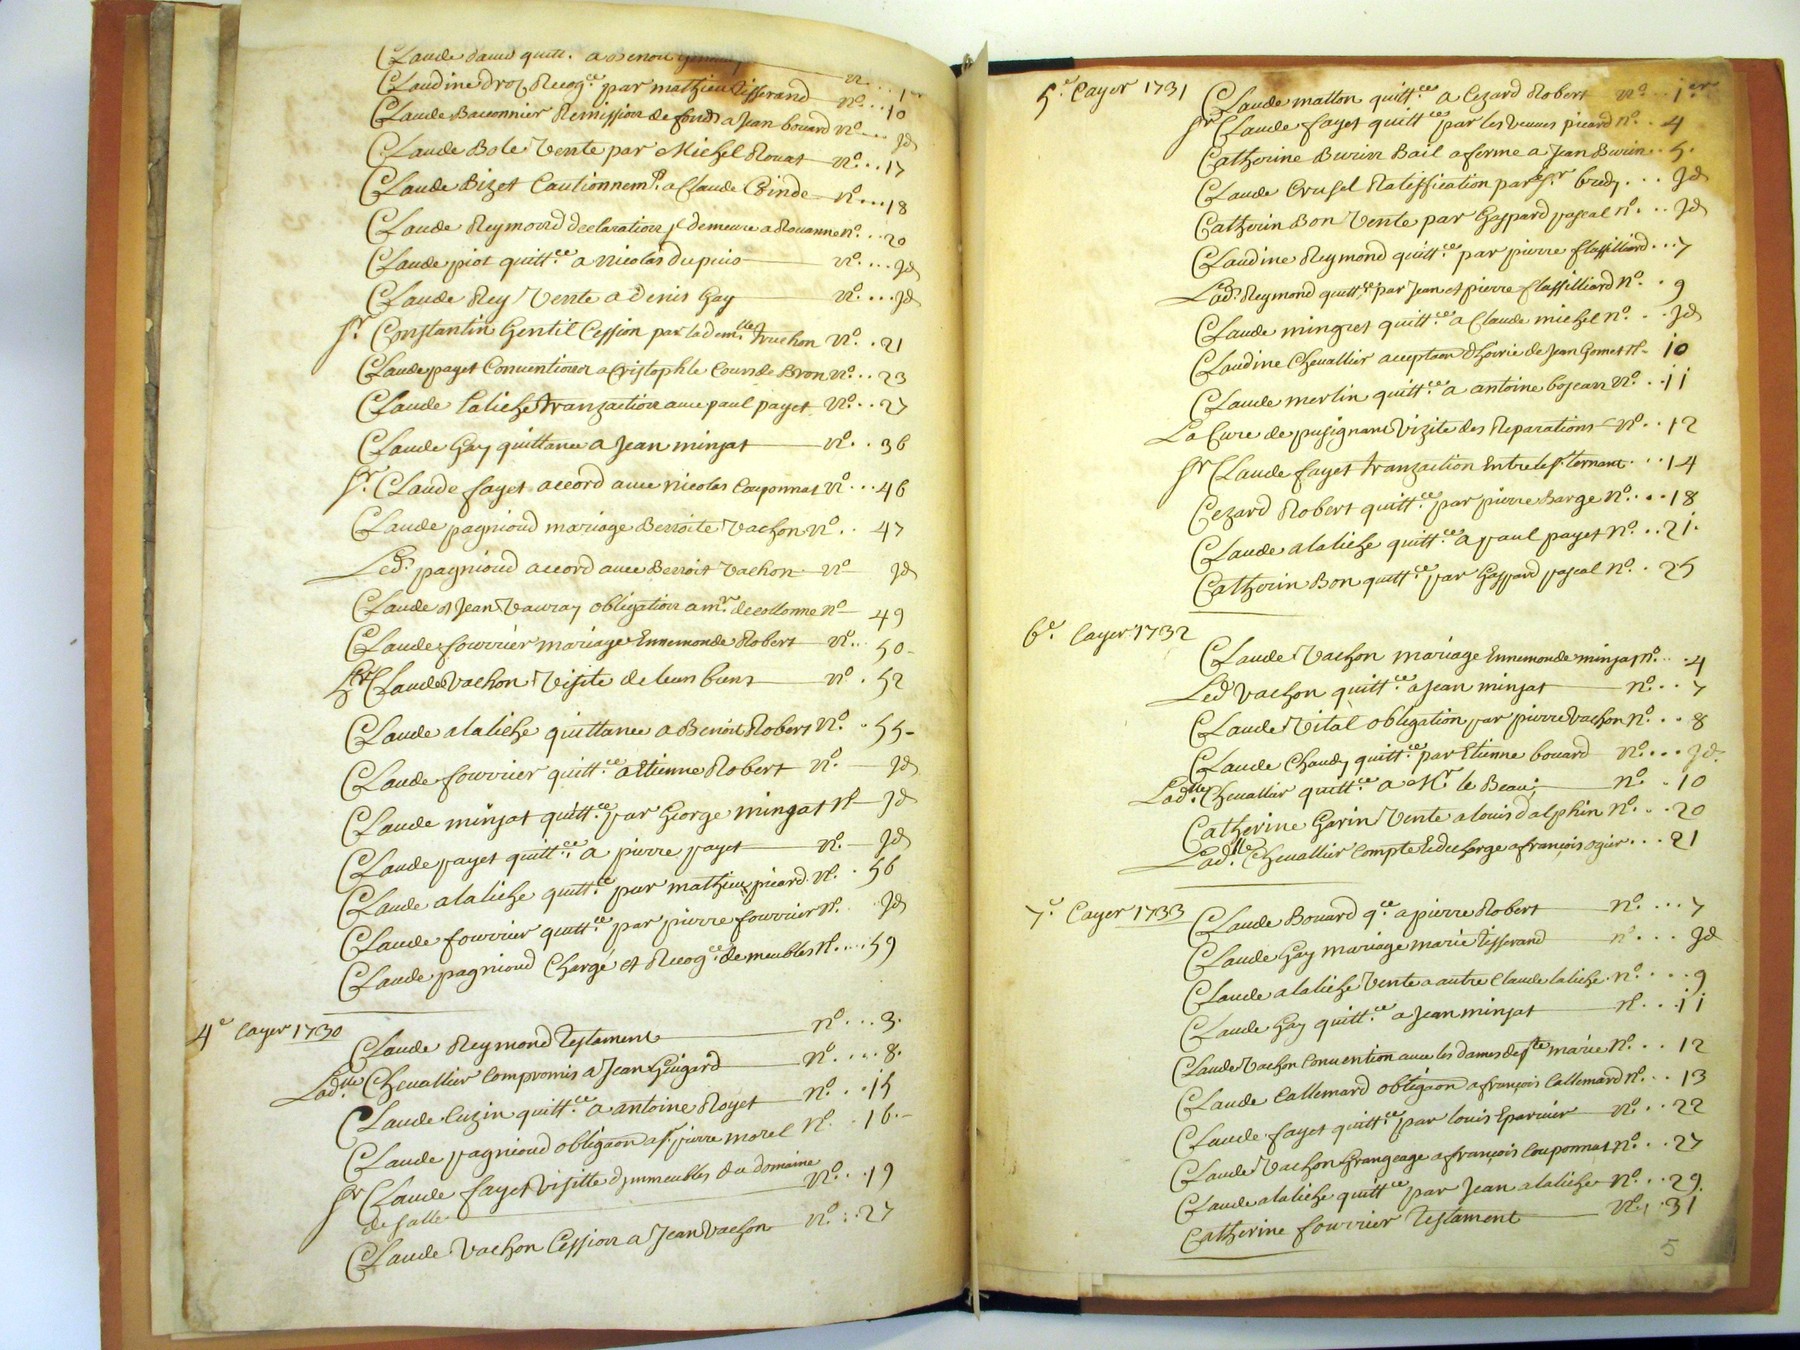 Claude david quitt. a Benoit
Claudine droz Recog.ce par mathieu Tisserand n.o .. 1er
Claude Baconnier Remission de fond a Jean bouard n.o ... 10
Claude Bole Vente par Michel Rouat n.o ... Jd
Claude Bizet Cautionnem.t a Claude Coinde n.o ... 17
Claude Reymond declaration demeure a Rouanne n.o ... 18
Claude piot quitt.ce a nicolas dupuis n.o ... 20
Claude Rey Vente a denis Gay n.o ... Jd
Sr. Constantin Gentil Cession par la dem.lle truchon n.o . 21
Claude payet Convention a Cristophle Courde Bron n.o .. 23
Claude laliche tranzaction avec paul payet n.o .. 27
Claude Gay quittance a Jean minjat n.o .. 36
Sr. Claude fayet accord avec nicolas Couponnat n.o ... 46
Claude pagnioud mariage Benoite Vachon n.o .. 47
Led. pagnioud accord avec Benoit Vachon n.o Jd
Claude et Jean Vauray obligation a mr. decollonne n.o 49
Claude fourrier mariage Ennemonde Robert n.o .. 50
Claude Vachon Visite de leurs biens n.o . 52
Claude alaliche quittance a Benoit Robert n.o . 55
Claude fourrier quitt.ce a Etienne Robert n.o Jd
Claude minjat quitt.ce par George mingat n.o Jd
Claude payet quitt.ce a pierre payet n.o Jd
Claude alaliche quitt.ce par mathieu picard n.o . 56
Claude fourrier quitt.ce par pierre fourrier n.o Jd
Claude pagnioud Chargé et Recog.ce de meubles n.o .... 59
4.e Cayer 1730
Claude Reymond Testament n.o ... 3.
Lad.lle Chevallier Compromis a Jean Guigard n.o .... 8.
Claude Cuzin quitt.ce a antoine Royet n.o .. 15
Claude pagnioud obligaon a sr. pierre morel n.o . 16.
Sr Claude fayet Visitte d'immeubles du domaine
de salle n.o .. 19
Claude Vachon Cession a Jean Vachon n.o .. 27
5.e Cayer 1731
Claude matton quitt.ce a Cezard Robert n.o .. 1.er
Sr Claude fayet quitt.ce par les Veuves picard n.o .. 4
Catherine Burin Bail a ferme a Jean Burin .. 5.
Claude Crusel Ratiffication par Sr. bredy ... Jd
Catherin Bon Vente par Gaspard pascal n.o ... Jd
Claudine Reymond quitt.ce par pierre flassilliard ... 7
Lad. Reymond quitt.ce par Jean et pierre flassilliard n.o . 9
Claude mingret quitt.ce a Claude michel n.o .. Jd
Claudine Chevallier acceptaon d'hoirie de Jean Gomet n.o 10
Claude merlin quitt.ce a antoine bojean n.o .. 11
La Cure de pusignan Vizite des Reparations n.o .. 12
Sr Claude fayet tranzaction Entre le Sr. ternant ... 14
Cezard Robert quitt.ce par pierre Barge n.o ... 18
Claude alaliche quitt.ce a paul payet n.o .. 21.
Catherin Bon quitt.ce par Gaspard pascal n.o . 25
6.e Cayer 1732
Claude Vachon mariage Ennemonde minjat n.o .. 4
Led. Vachon quitt.ce a Jean minjat n.o .. 7
Claude Vital obligation par pierre Vachon n.o .. 8
Claude Chaudy quitt.ce par Etienne bouard n.o ... Jd.
Lad.lle Chevallier quitt.ce a Mr. le Beau n.o . 10
Catherine Garin Vente a louis dalphin n.o ... 20
Lad.lle Chevallier Compte Et decharge a françois ogier ... 21
7.e Cayer 1733
Claude Bouard q.ce a pierre Robert n.o ... 7
Claude Gay mariage marie Tisserand n.o ... Jd
Claude alaliche Vente a autre Claude laliche n.o ... 9
Claude Gay quitt.ce a Jean minjat n.o ... 11
Claude Vachon Convention avec les dames de Ste marie n.o .. 12
Claude Callemard obligaon a françois Callemard n.o .. 13
Claude fayet quitt.ce par louis Eparvier n.o .. 22
Claude Vachon Grangeage a françois Couponnat n.o .. 27
Claude alaliche quitt.ce par Jean alaliche n.o .. 29.
Catherine fourrier Testament n.o . 31
5